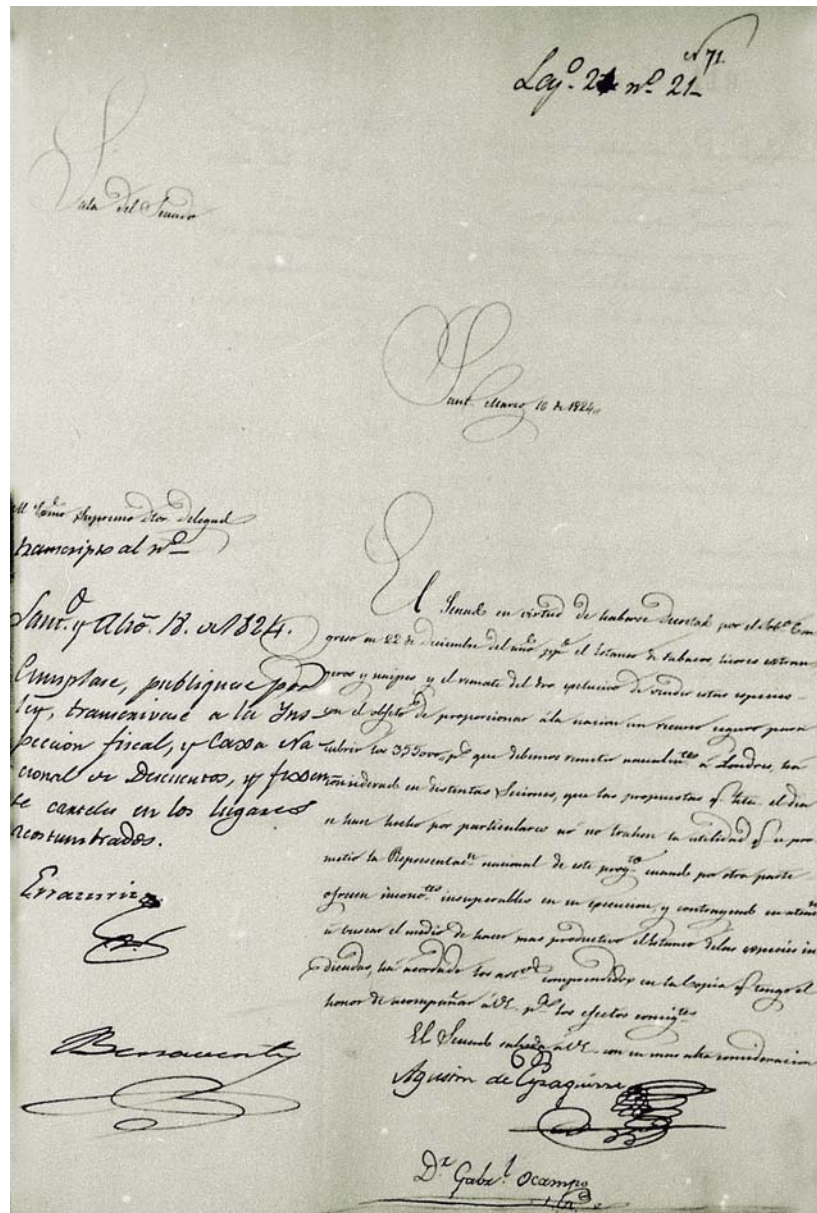 nº 71.
Leg.o 2 nº 21
Sala del Senado
Sant. Marzo 16 de 1824
Al Exmo Supremo Dtor. Delegad
transcripto al nº
Sant.o y Abo. 18. de 1824.
Cumplase, publiquese por
ley, transcrivase a la Ins-
pección fiscal, y Caxa Na
cional de Descuentos, y fixen
se carteles en los lugares
acostumbrados.
Errazuriz
Benavente
El Senado en virtud de haberse decretad por el Con
greso en 22 de Diciembre del año el Estanco de tabacos, licores extran
geros y naipes y el remate del dro exclusivo de vender estas especies
con el objeto de proporcionar á la nacion un recurso seguro para
cubrir los 355000 p.s que debemos remitir anualm.tes á Londres, ha
considerado en distintas Seciones, que las propuestas q.e hta. el dia
se han hecho por particulares no trahen la utilidad q.e se pro
metio la Representac.n nacional de este proy.to cuando por otra parte
ofrecen incon.tes insuperables en su execucion, y contrayendo su atenc.n
á buscar el medio de hacer mas productivo el Estanco delas especies in
dicadas, há acordado los art.os comprendidos en la Copia q.e tengo el
honor de acompañar á V.E. p.a los efectos consig.tes
El Senado saluda á V.E. con su mas alta consideracion
Agustin de Eyzaguirre
D.r Gab.l Ocampo